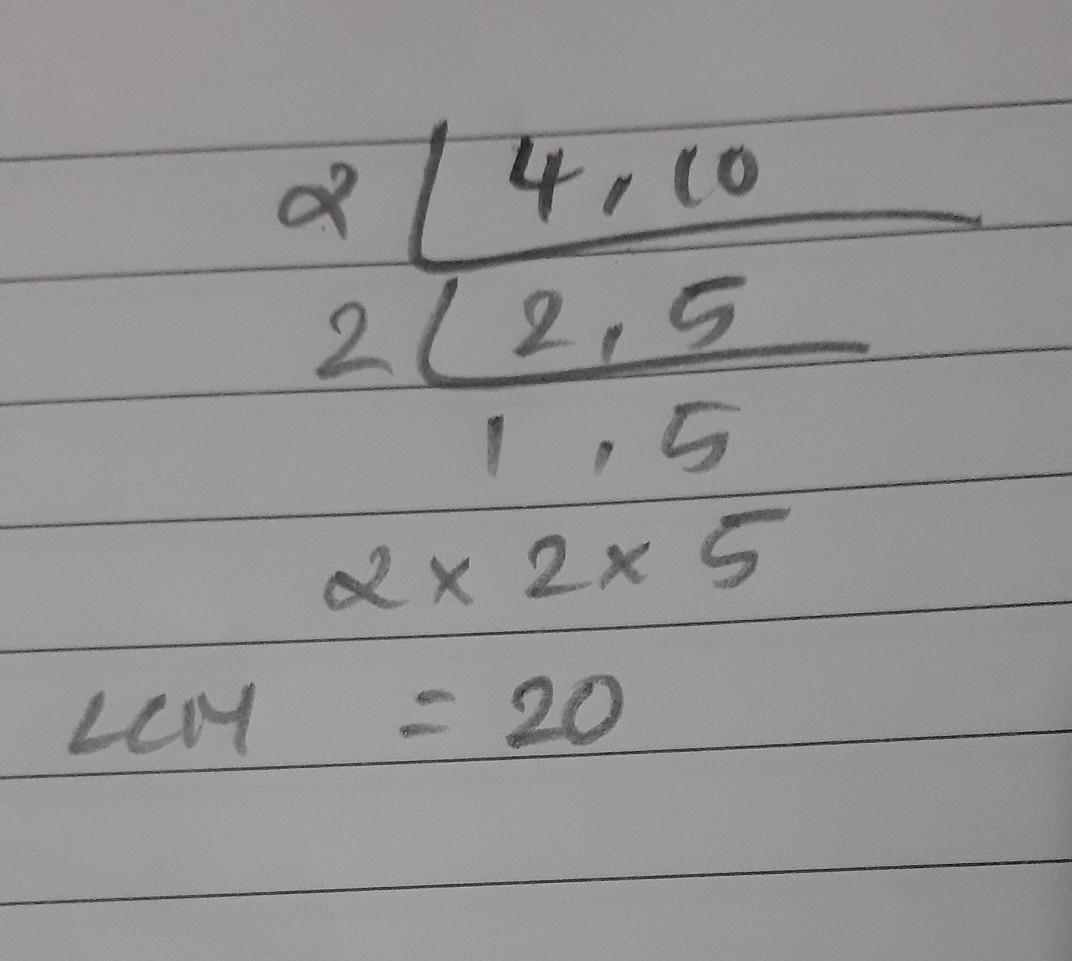 2 | 4, 10
2 | 2, 5
1, 5
2 × 2 × 5
LCM = 20